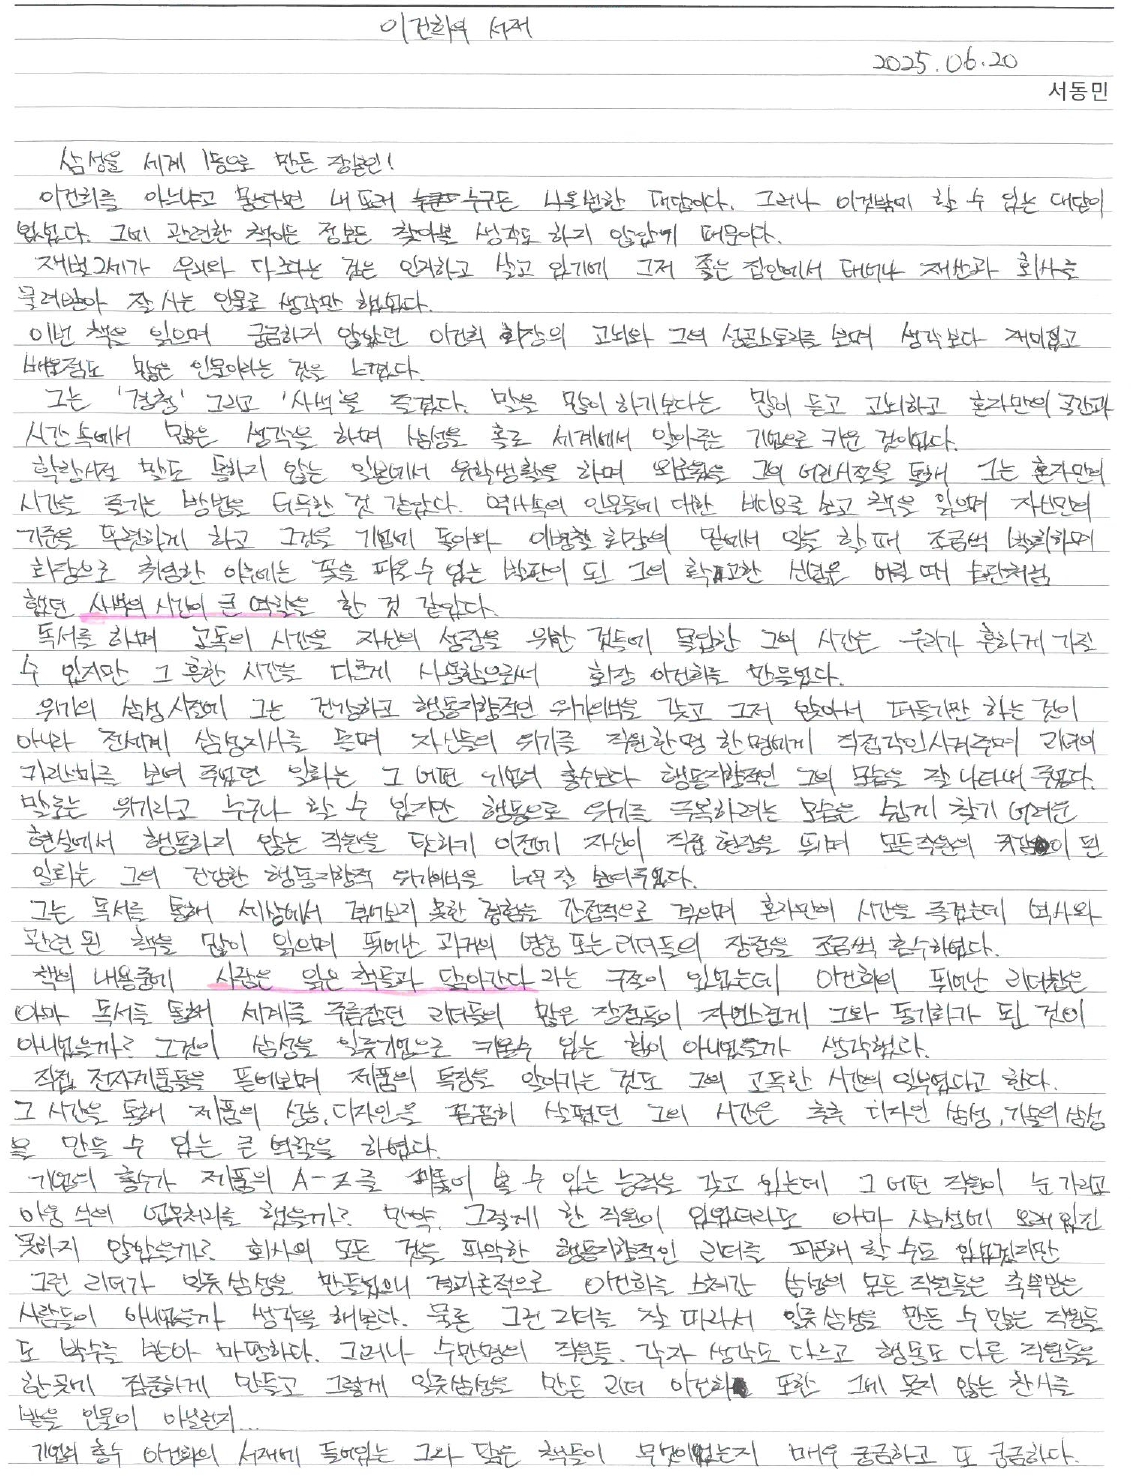 이건희의 서재
2025.06.20
서동민
삼성을 세계 1등으로 만든 장본인!
이건희를 아느냐고 묻는다면 내 또래 누구든 나올법한 대답이다. 그러나 이것밖에 할 수 있는 대답이
없었다. 그에 관련한 책이든 정보든 찾아볼 생각도 하지 않았기 때문이다.
재벌2세가 우리와 다르다는 것은 인지하고 살고 있기에 그저 좋은 집안에서 태어나 재산과 회사를
물려받아 잘 사는 인물로 생각만 했었다.
이번 책을 읽으며 궁금하지 않았던 이건희 회장의 고뇌와 그의 성공스토리를 보며 생각보다 재미있고
배울점도 많은 인물이라는 것을 느꼈다.
그는 '경청' 그리고 '사색'을 즐겼다. 말을 많이 하기보다는 많이 듣고 고뇌하고 혼자만의 공간과
시간 속에서 많은 생각을 하며 삼성을 홀로 세계에서 알아주는 기업으로 키운 것이었다.
학창시절 말도 통하지 않는 일본에서 유학생활을 하며 외로웠을 그의 어린시절을 통해 그는 혼자만의
시간을 즐기는 방법을 터득한 것 같았다. 역사속의 인물들에 대한 비디오를 보고 책을 읽으며 자신만의
기준을 뚜렷하게 하고 그것을 기업에 돌아와 이병철 회장의 밑에서 일을 할 때 조금씩 발휘하며
회장으로 취임한 이후에는 꽃을 피울 수 있는 발판이 된 그의 확고한 신념은 어릴 때 습관처럼
했던 사색의 시간이 큰 역할을 한 것 같았다.
독서를 하며 고독의 시간을 자신의 성장을 위한 것들에 몰입한 그의 시간은 우리가 흔하게 가질
수 있지만 그 흔한 시간을 다르게 사용함으로써 회장 이건희를 만들었다.
위기의 삼성 시절에 그는 건강하고 행동지향적인 위기의식을 갖고 그저 앉아서 떠들기만 하는 것이
아니라 전세계 삼성지사를 돌며 자신들의 위기를 직원 한명 한명에게 직접 각인시켜주며 리더의
카리스마를 보여 주었던 일화는 그 어떤 기업의 총수보다 행동지향적인 그의 모습을 잘 나타내 주었다.
말로는 위기라고 누구나 할 수 있지만 행동으로 위기를 극복하려는 모습은 쉽게 찾기 어려운
현실에서 행동하지 않는 직원을 탓하기 이전에 자신이 직접 현장을 뛰며 모든직원의 귀감이 된
일화는 그의 건강한 행동지향적 위기의식을 너무 잘 보여주었다.
그는 독서를 통해 세상에서 겪어보지 못한 경험을 간접적으로 겪으며 혼자만의 시간을 즐겼는데 역사와
관련 된 책을 많이 읽으며 뛰어난 과거의 영웅 또는 리더들의 장점을 조금씩 흡수하였다.
책의 내용중에 사람은 읽은 책들과 닮아간다 라는 구절이 있었는데 이건희의 뛰어난 리더십은
아마 독서를 통해 세계를 주름잡던 리더들의 많은 장점들이 자연스럽게 그와 동기화가 된 것이
아니었을까? 그것이 삼성을 일류기업으로 키울수 있는 힘이 아니었을까 생각했다.
직접 전자제품들을 뜯어보며 제품의 특징을 알아가는 것도 그의 고독한 시간의 일부였다고 한다.
그 시간을 통해 제품의 성능, 디자인을 꼼꼼히 살폈던 그의 시간은 훗훗 디자인 삼성, 기술의 삼성
을 만들 수 있는 큰 역할을 하였다.
기업의 총수가 제품의 A-Z를 꿰뚫어 볼 수 있는 능력을 갖고 있는데 그 어떤 직원이 눈 가리고
아웅 식의 업무처리를 했을까? 만약 그렇게 한 직원이 있었더라도 아마 삼성에 오래 있진
못하지 않았을까? 회사의 모든 것을 파악한 행동지향적인 리더를 피곤해 할 수도 있었겠지만
그런 리더가 일류삼성을 만들었으니 결과론적으로 이건희를 스쳐간 삼성의 모든 직원들은 축복받은
사람들이 아니었을까 생각을 해본다. 물론 그런 리더를 잘 따라서 일류삼성을 만든 수 많은 직원들
도 박수를 받아 마땅하다. 그러나 수만명의 직원들, 각자 생각도 다르고 행동도 다른 직원들을
한곳에 집중하게 만들고 그렇게 일류삼성을 만든 리더 이건희 또한 그에 못지 않는 찬사를
받을 인물이 아닐런지...
기업의 총수 이건희의 서재에 들어있는 그와 닮은 책들이 무엇이었는지 매우 궁금하고 또 궁금하다.